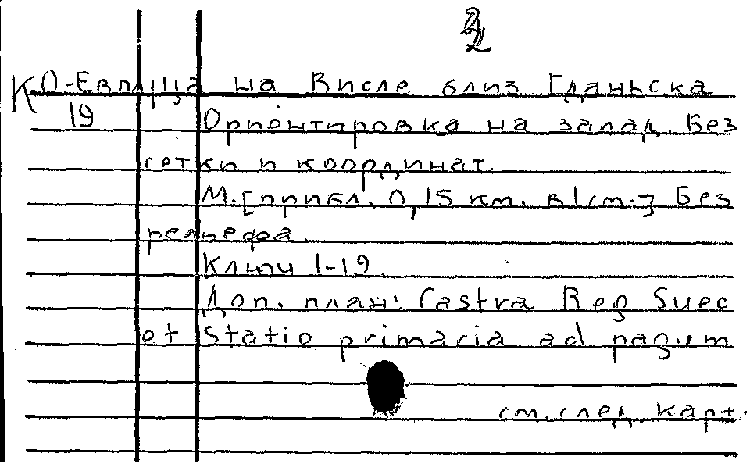 2
К П-Евлица на Висле близ Гданьска
19 Ориентировка на запад. Без
сетки и координат.
М.[прибл. 0,15 км. в 1 см.] Без
рельефа.
Ключи 1-19.
Доп. план: Castra Reg Suec
et Statio primaria ad pagum
см. след. карт.